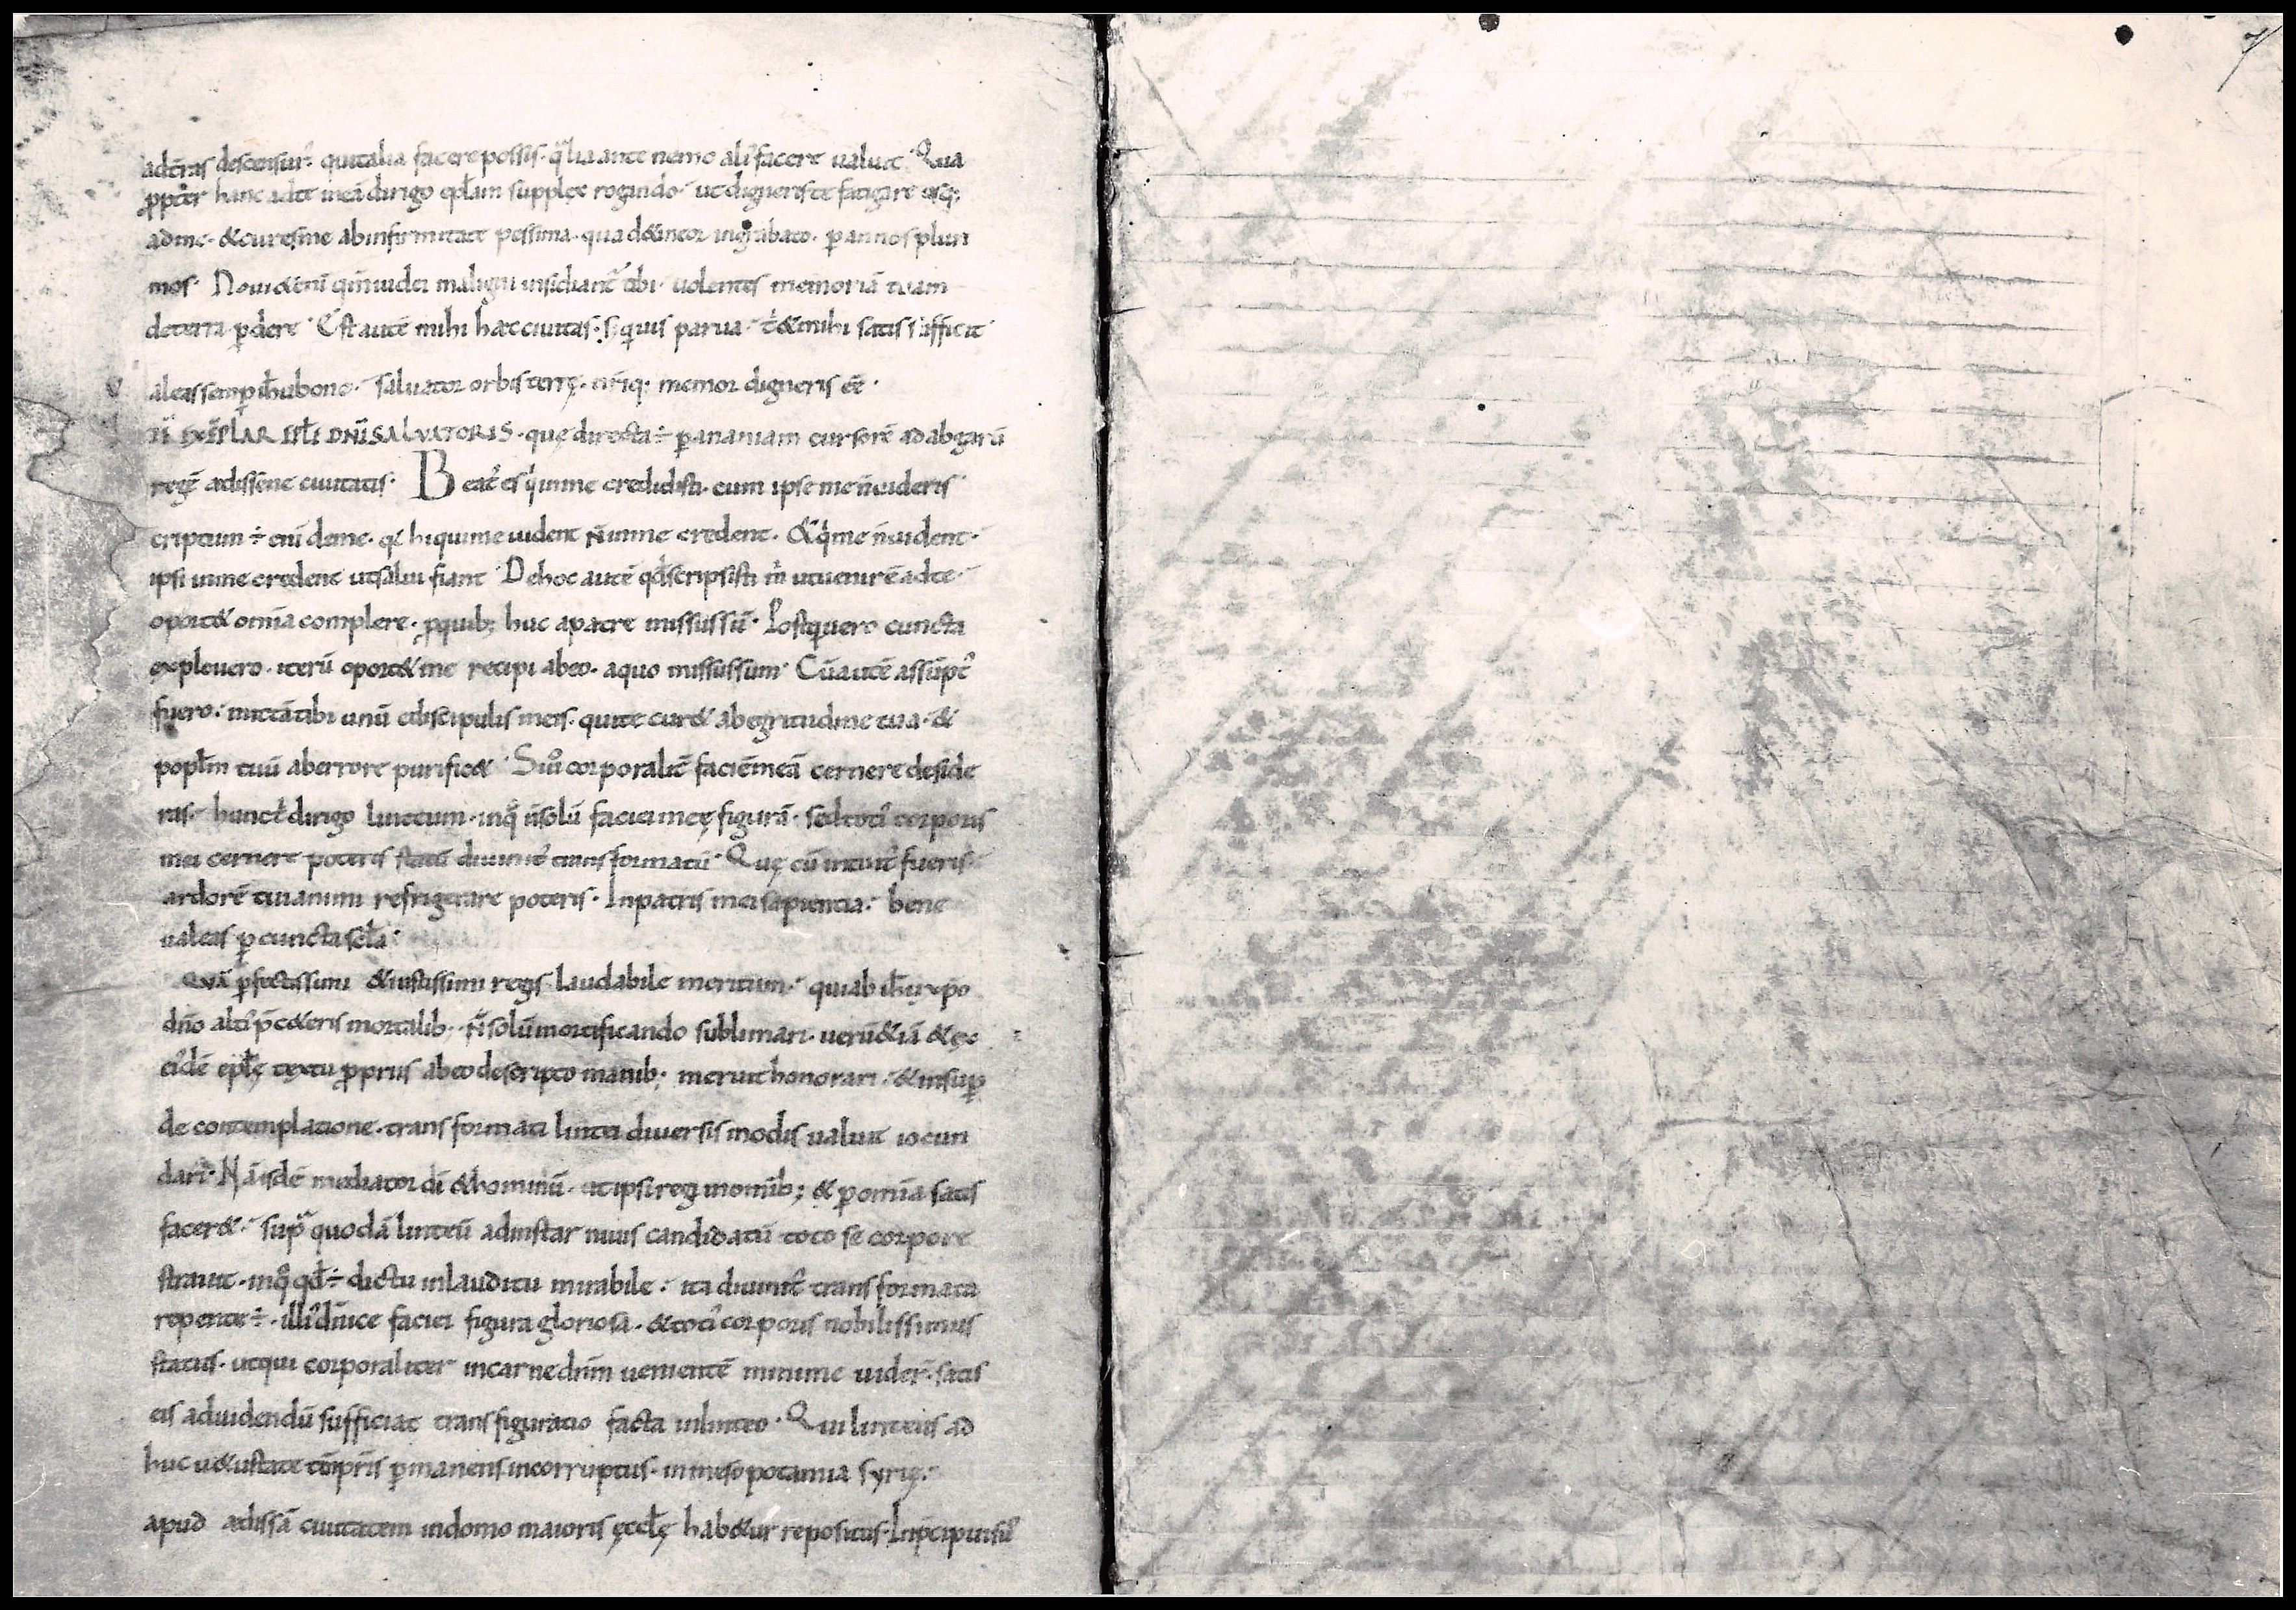 adt̄ras descensur᷒. quitalia facerepossis. q̄lia ante nemo ali᷒facere ualuit. Qua
ꝓpt̄er hanc adte meā dirigo epl̄am supplex rogando. ut digneriste fatigare usq;
adme. &curesme abinfirmitate pessima. qua d&ineor ingrabato. ꝑ annos pluri
mos. Nou&eni qinuidei maligni insidiant᷒ tibi. uolentes memoriā tuam
deterra ꝑdere. Est autē mihi haec ciuitas. siquis parua. t̄&mihi satis sufficit
aleas semꝑ ih̄ubone. saluator orbis terrę. nr̄iq; memor digneris eē.
IT̄ EXĒPLAR EPL̄E DN̄I SALVATORIS. quę directa÷ ꝑananiam cursorē ad abgarū
regē edissene ciuitatis. Beat᷒ es qinme credidisti. cum ipse me n̄ uideris
criptum ÷ eni deme. qđ hi quime uident n̄ inme credent. &q̇me n̄ uident.
ipsi inme credent ut salui fiant. De hoc autē qđ scripsisti m̄ utuenirē adte.
oport& omīa complere. ꝓquib; huc apatre missussū. Postquero cuncta
expleuero. iterū oport&me recipi abeo. aquo missussum. Cūautē assūpt᷒
fuero. mittā tibi unū ediscipulis meis. quite cur& abegritudine tua. &
popl̄m tuū aberrore purific&. Siu͛o corporalit̄ faciēmeā cernere deside
ras. hunct̄ dirigo linteum. inq̊ n̄solū faciei meę figurā. sedtoti᷒ corporis
mei cernere poteris statū diuinit᷒ transformatū. Quę cū intuit᷒ fueris.
ardorē tuianimi refrigerare poteris. Inpatris mei sapientia. bene
ualeas ꝑ cuncta scl̄a.
Quā ꝑfectissimi &iustissimi regis laudabile meritum. quiab ih̄u xp̄o
dn̄o alti᷒ p̄ c&eris mortalib;. n̄ solū mortificando sublimari. uerū&iā &ęx
ei᷒dē epl̄ę textu ꝓpriis abeo descripto manib; meruit honorari. &insuꝑ
de contemplatione. transformati lintei diuersis modis ualuit iocun
dari. Nā isdē mediator dī &hominū. ut ipsi regi inomīb; & ꝑ omīa satis
facer&. suꝑ quodā linteū adinstar niuis candidatū toto se corpore
strauit. inq̊ qđ÷ dictu inlauditu mirabile. ita diuinit᷒ transformata
repente÷. illi᷒ dn̄ice faciei figura gloriosa. &toti᷒ corporis nobilissimus
status. utqui corporaliter incarne dn̄m uenientē minime uider̄. satis
eis aduidendū sufficiat transfiguratio facta inlinteo. Qui linteus ad
huc u&ustate tēporis ꝑmanens incorruptus. in mesopotamia syrię.
apud edissā ciuitatem indomo maioris ęccl̄ę hab&ur repositus.